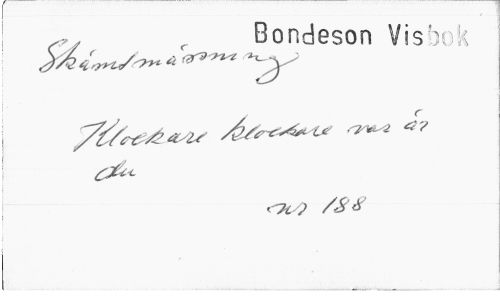 Bondeson Visbok
Skämtmässning
Klockare klockare var är
du
nr 188